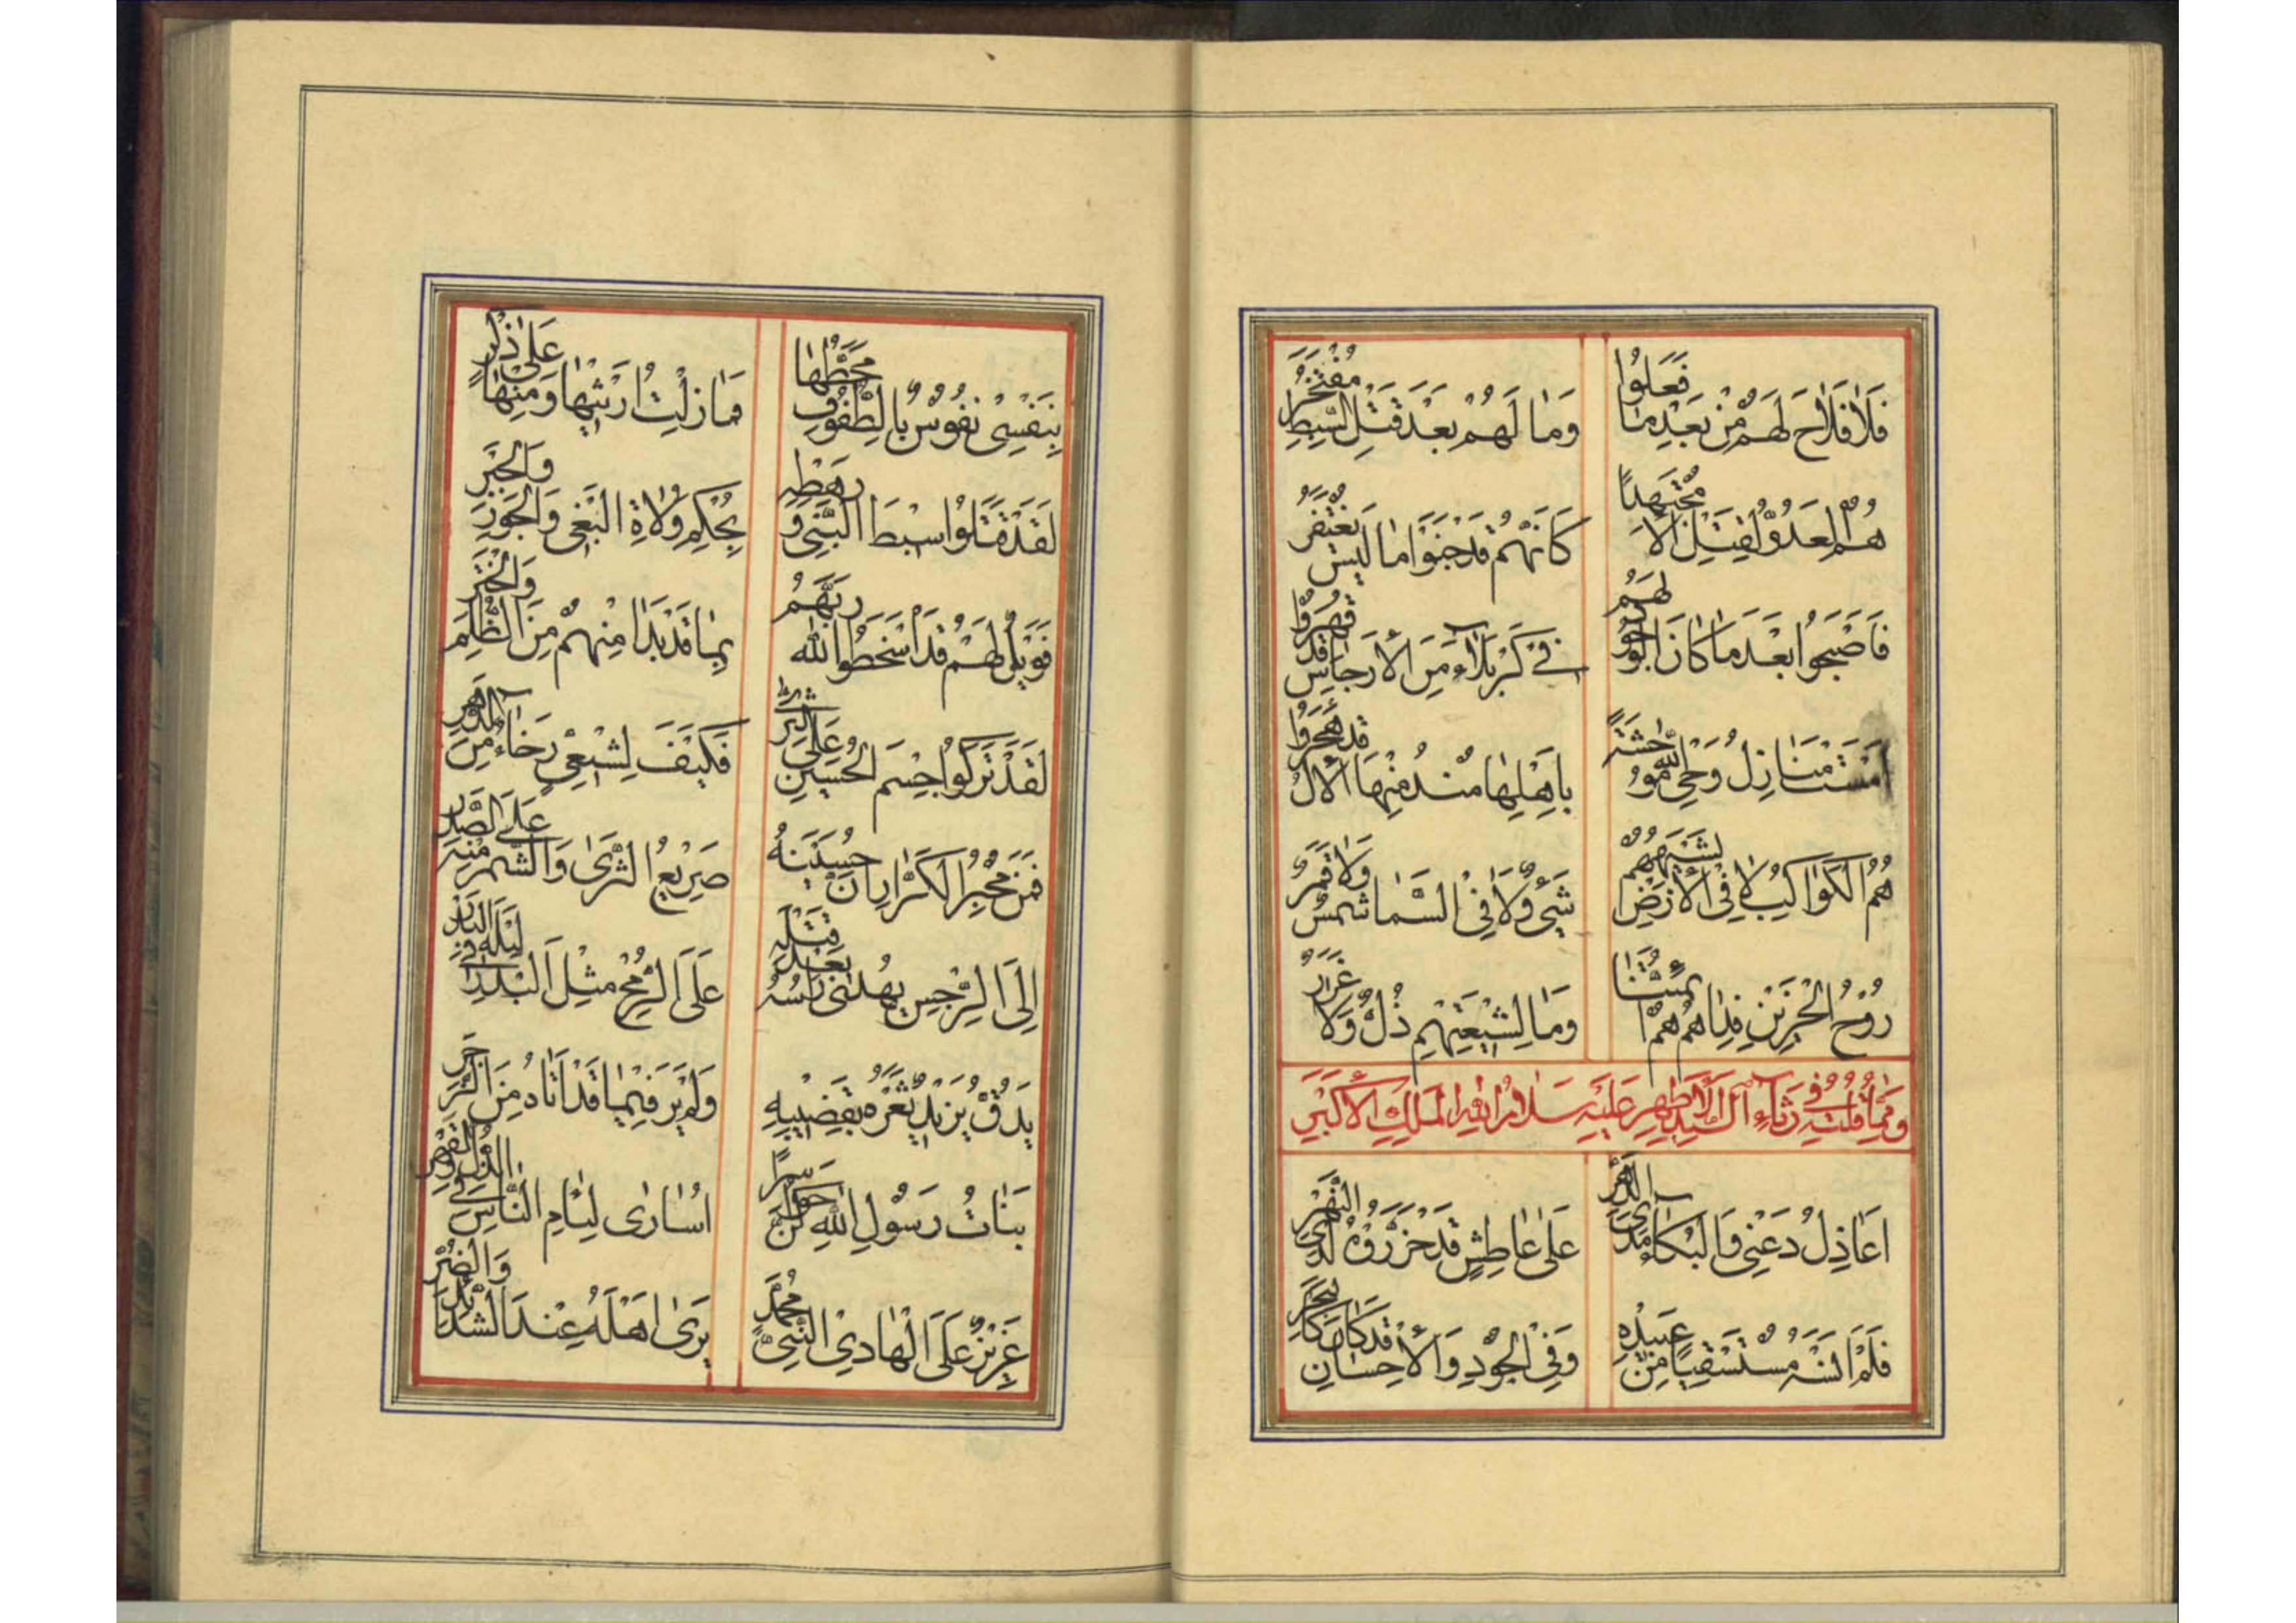 فَلَا فَلَاحَ لَهُمْ مِنْ بَعْدِ مَا فَعَلُوا
وَمَا لَهُمْ بَعْدَ قَتْلِ السِّبْطِ مُفْتَخَرُ
هُمُ لَعَدُوٌّ لِقَتْلِ الْآلِ مُجْتَهِدًا
كَأَنَّهُمْ قَدْ جَنَوْا مَا لَيْسَ يُغْتَفَرُ
فَأَصْبَحُوا بَعْدَ مَا كَانَ لَهُمْ
فِي كَرْبَلَاءَ مِنَ الْأَرْجَاسِ قَدْ قُهِرُوا
أَمْسَتْ مَنَازِلُ وَحْيِ اللّٰهِ مُوحِشَةً
بِأَهْلِهَا مُنْذُ مِنْهَا الْآلُ قَدْ هُجِرُوا
هُمُ الْكَوَاكِبُ لَا فِي الْأَرْضِ يُشْبِهُهُمْ
شَيْءٌ وَلَا فِي السَّمَا شَمْسٌ وَلَا قَمَرُ
رُوْحُ الْحَزِيْنِ فِدَاهُمْ هُمْ أَئِمَّتُنَا
وَمَا لِشِيْعَتِهِمْ ذُلٌّ وَلَا غَرَرُ
وَمِمَّا قُلْتُ فِي رَثَاءِ آلِ السَّيِّدِ الْأَطْهَرِ عَلَيْهِ سَلَامُ اللّٰهِ الْمَلِكِ الْأَكْبَرِ
اَعَاذِلُ دَعْنِي وَالْبُكَاءَ مَدَى الدَّهْرِ
عَلَى عَاطِشٍ قَدْ حَزَّرُوْهُ لَدَى النَّهْرِ
فَلَمْ اَنْسَهُ مُسْتَسْقِيًا مِنْ عَبِيْدِهِ
وَفِي الْجُوْدِ وَالْاِحْسَانِ قَدْ كَانَ كَالْبَحْرِ
بِنَفْسِيْ نُفُوْسٌ بِالطُّفُوْفِ مَحَطُّهَا
وَمَا زِلْتُ اَرْثِيْهَا وَمِنْهَا عَلٰى ذُكْرٍ
لَقَدْ قَتَلُوا سِبْطَ النَّبِيِّ وَرَهْطِهِ
بِحُكْمِ وُلَاةِ الْبَغْيِ وَالْجَوْرِ وَالْجَبْرِ
فَوَيْلٌ لَهُمْ قَدْ اَسْخَطُوا اللّٰهَ رَبَّهُمُ
بِمَا قَدْ بَدَا مِنْهُمْ مِنَ الظُّلْمِ وَالْخَتْرِ
لَقَدْ تَرَكُوا جِسْمَ الْحُسَيْنِ عَلَى الثَّرٰى
فَكَيْفَ لِشِيْعِيٍّ رَخَاءٌ مِنَ الدَّهْرِ
فَمَنْ مُخْبِرُ الْكَرَّارِ اَنَّ حُسَيْنَهُ
صَرِيْعُ الثَّرٰى وَالشِّمْرُ مِنْهُ عَلَى الصَّدْرِ
اِلَى الرِّجْسِ يُهْدٰى رَاْسُهُ بَعْدَ قَتْلِهِ
عَلَى الرُّمْحِ مِثْلَ الْبَدْرِ فِي لَيْلَةِ الْبَدْرِ
يَدُقُّ يَزِيْدٌ ثَغْرَهُ بِقَضِيْبِهِ
وَلَمْ يَرَ فِيْمَا قَدْ اَتَاهُ مِنَ الزَّجْرِ
بَنَاتُ رَسُوْلِ اللّٰهِ كُنَّ حَوَاسِرًا
اُسَارٰى لِئَامِ النَّاسِ فِي الذُّلِّ وَالْقَهْرِ
عَزِيْزٌ عَلَى الْهَادِي النَّبِيِّ مُحَمَّدٍ
يَرٰى اَهْلَهُ عِنْدَ الشَّدَائِدِ وَالضُّرِّ